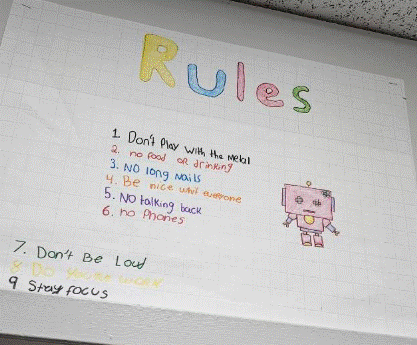 Rules
1. Don't Play with the metal
2. no food or drinking
3. NO long nails
4. Be nice whit everyone
5. NO talking back
6. no Phones
7. Don't Be Loud
8 Do your work
9 Stay focus